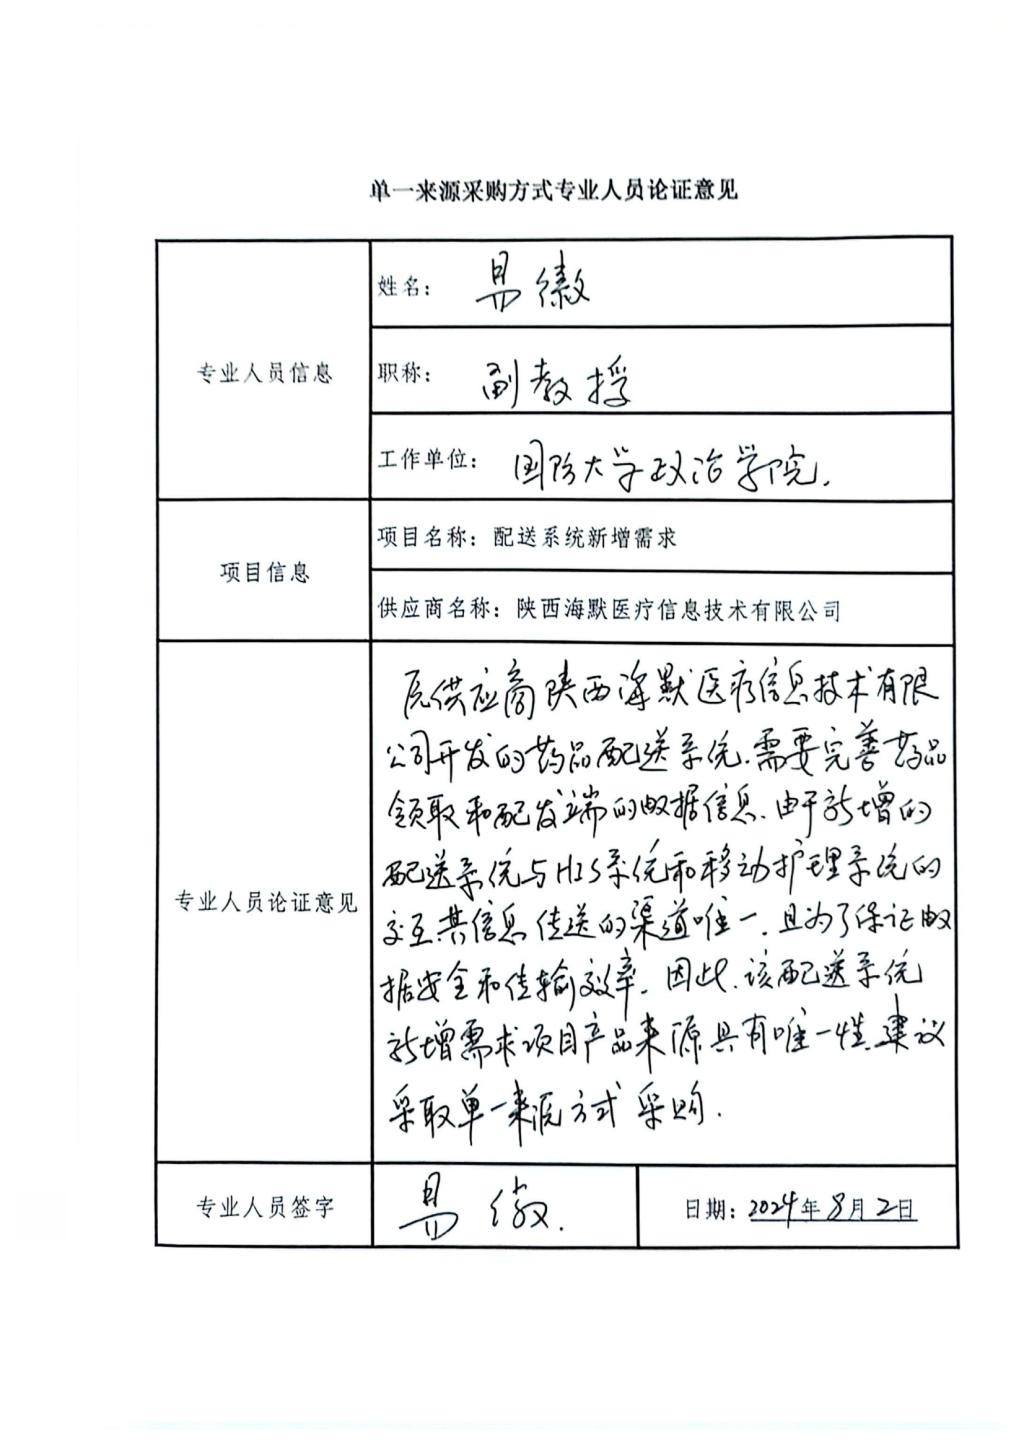 单一来源采购方式专业人员论证意见
专业人员信息
姓名：易徽
职称：副教授
工作单位：国防大学政治学院.
项目信息
项目名称：配送系统新增需求
供应商名称：陕西海默医疗信息技术有限公司
专业人员论证意见
原供应商陕西海默医疗信息技术有限
公司开发的药品配送系统.需要完善药品
领取和配发端的数据信息.由于新增的
配送系统与HIS系统和移动护理系统的
交互共信息传送的渠道唯一.且为了保证数
据安全和传输效率.因此.该配送系统
新增需求项目产品来源具有唯一性.建议
采取单一来源方式采购.
专业人员签字
易徽.
日期：2024年8月2日